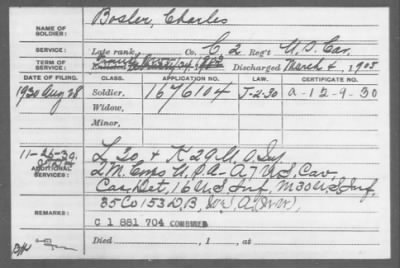 NAME OF SOLDIER: Bosler, Charles
SERVICE: Late rank, Co. C, 2 Reg't U.S. Cav.
TERM OF SERVICE: Enlisted Discharged March 4, 1905
DATE OF FILING. CLASS. APPLICATION NO. LAW. CERTIFICATE NO.
1930 Aug 28 Soldier, 1676104 J-2-30 a-12-9-30
Widow,
Minor,
11-26-30
ADDITIONAL SERVICES: L 30, & K 29 U.S. Inf
A 7 U.S. Cav,
Cas. Det, 16 U.S. Inf, M 30 U.S. Inf,
35 Co 153 D.B, U.S.A. (WW),
REMARKS: C 1 881 704 COMBINED
Died , 1 , at